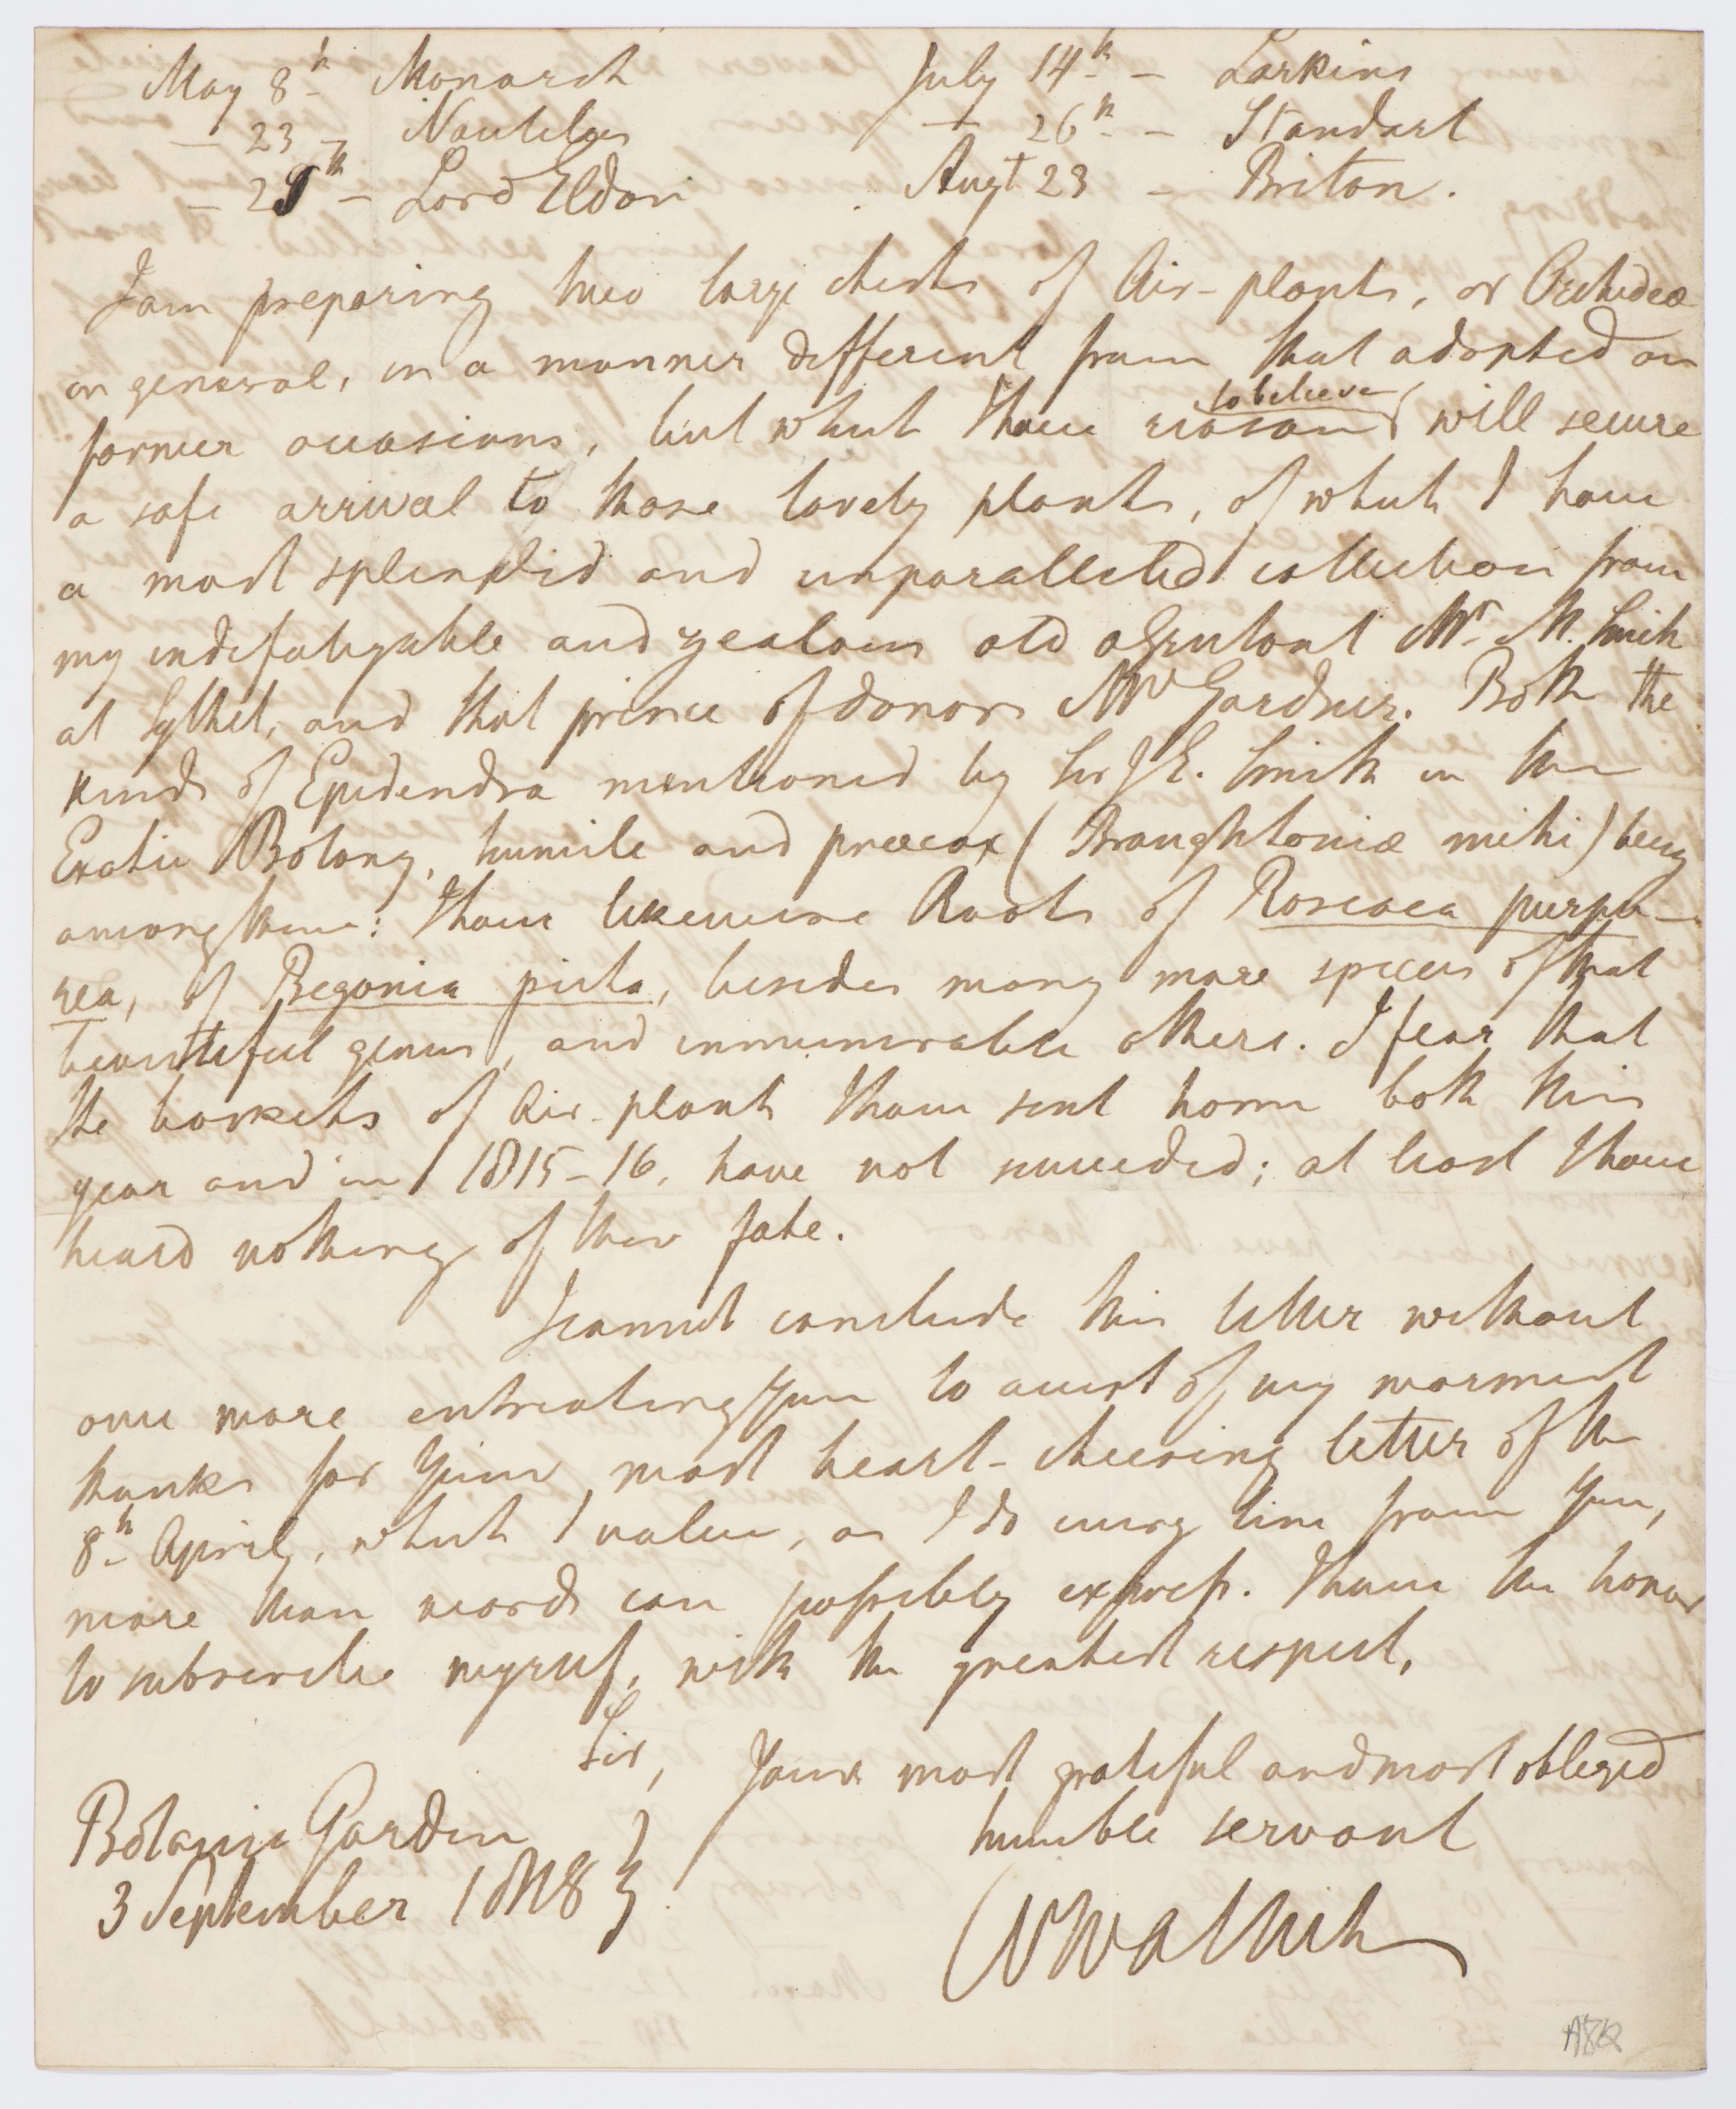 May 8th Monarch July 14th – Larkins
– 23 – Nautilus – 26th – Standart
– 25th – Lord Eldon Augt 23 – Briton.
I am preparing two large chests of Air-plants, or Orchideæ
in general, in a manner different from that adopted on
former occasions, but which I have reason to believe will secure
a safe arrival to those lovely plants, of which I have
a most splendid and unparalleled collection from
my indefatigable and zealous old assistant Mr. M. Smith
at Sylhet, and that prince of donors Mr Gardner. Both the
kinds of Epidendra mentioned by Sir J E. Smith in the
Exotic Botany, humile and præcox (Broughtoniæ mihi) being
among them: I have likewise Roots of Roscoea purpu-
rea, of Begonia picta, besides many more species of that
beautiful genus, and innumerable others. I fear that
the baskets of Air-plants I have sent home both this
year and in 1815-16, have not succeeded; at least I have
heard nothing of their fate.
I cannot conclude this letter without
once more entreating You to accept of my warmest
thanks for Your most heart-cheering letter of the
8th April, which I value, as I do every line from You,
more than words can possibly express. I have the honor
to subscribe myself, with the greatest respect,
Sir, Your most grateful and most obliged
humble servant
Botanic Garden
3 September 1818 }
N Wallich